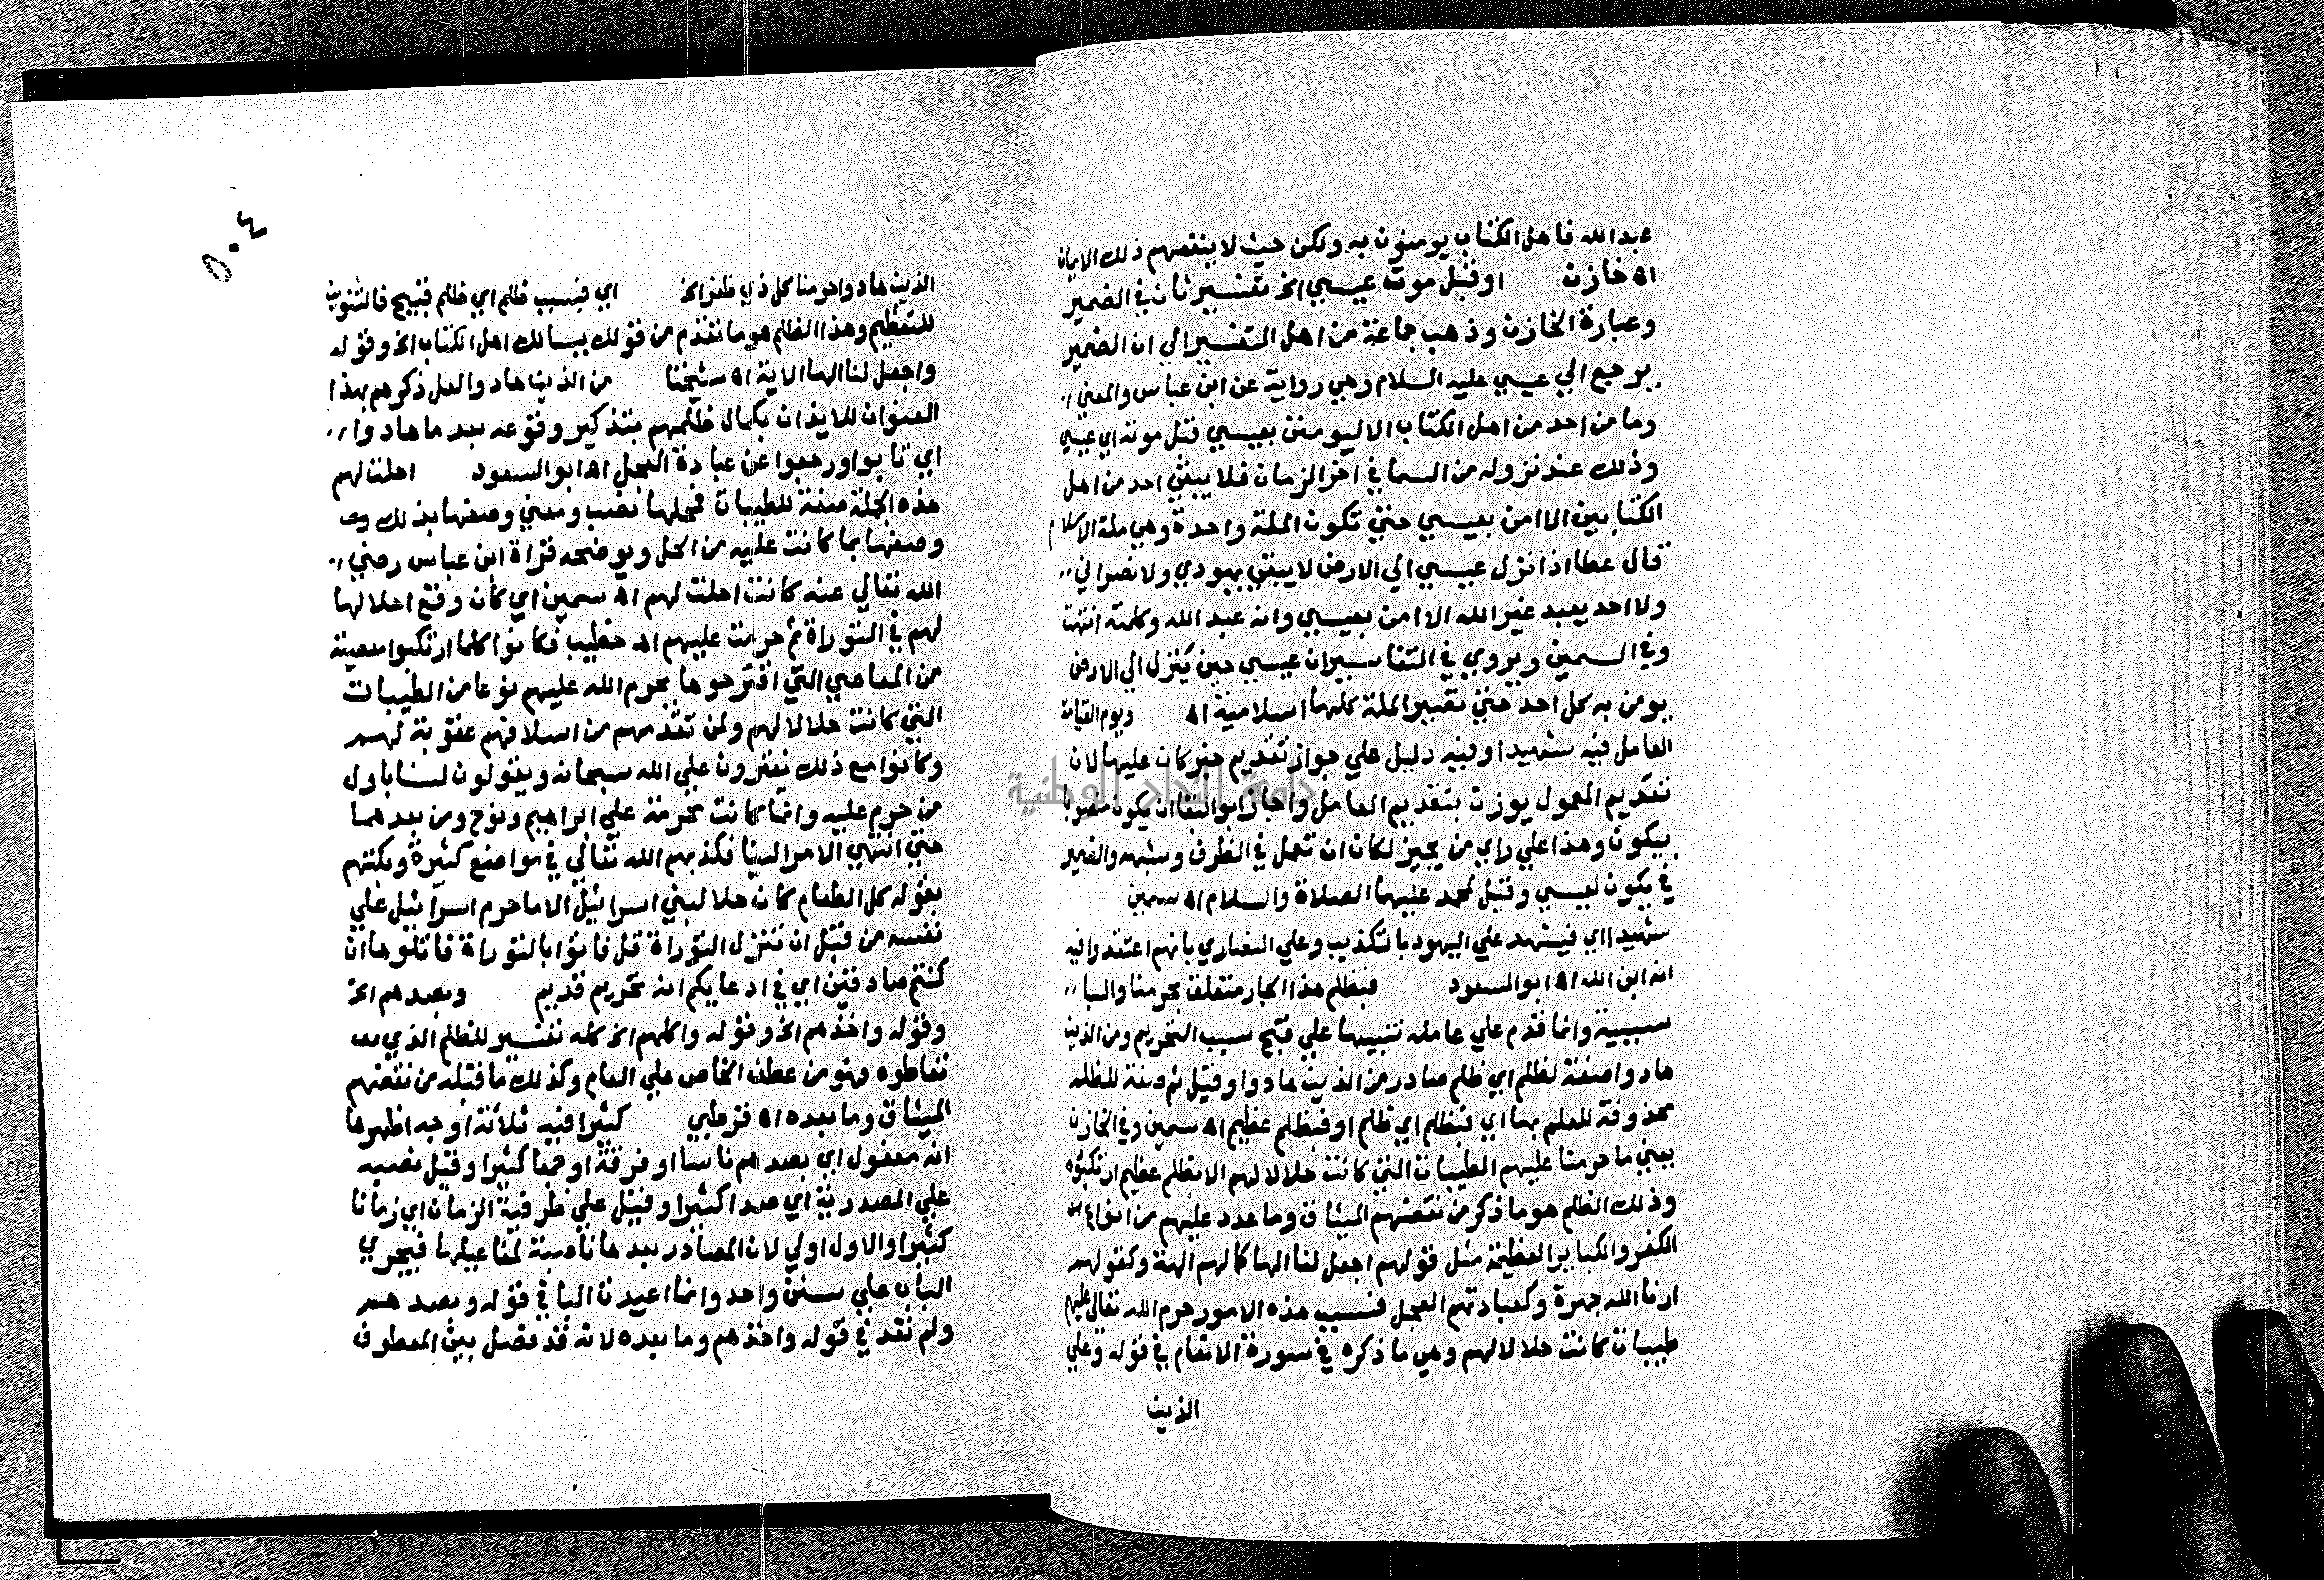 عبد الله فاهل الكتاب يومنون به ولكن حيث لا ينفعهم ذلك الايمان
اه خازن او قبل موته عيسي الخ تفسير ثان في الضمير
وعبارة الخازن وذهب جماعة من اهل التفسير الي ان الضمير
يرجع الي عيسي عليه السلام وهي رواية عن ابن عباس والمعني
وما من احد من اهل الكتاب الا ليومنن بعيسي قبل موته اي عيسي
وذلك عند نزوله من السما في اخر الزمان فلا يبقي احد من اهل
الكتابين الا امن بعيسي حتي تكون الملة واحدة وهي ملة الاسلام
قال عطا اذا نزل عيسي الي الارض لا يبقي يهودي ولا نصراني
ولا احد يعبد غير الله الا امن بعيسي وانه عبد الله وكلمته انتهت
وفي السمين ويروي في التفاسير ان عيسي حين ينزل الي الارض
يومن به كل احد حتي تصير الملة كلها اسلامية اه ويوم القيامة
العامل فيه شهيدا وفيه دليل علي جواز تقديم خبر كان عليها لان
تقديم المعمول يوزن بتقديم العامل واجاز ابو البقا ان يكون منصوبا
بيكون وهذا علي راي من يجيز لكان ان تعمل في الظرف وشبهه والضمير
في يكون لعيسي وقيل لمحمد عليهما الصلاة والسلام اه سمين
شهيدا اي فيشهد علي اليهود بالتكذيب وعلي النصاري بانهم اعتقدوا فيه
انه ابن الله اه ابو السعود فبظلم هذا الجار متعلق بحرمنا والبا
سببية وانما قدم علي عامله تنبيها علي قبح سبب التحريم ومن الذين
هادوا صفة لظلم اي ظلم صادر من الذين هادوا وقيل ثم صفة للظلم
محذوفة للعلم بها اي فبظلم اي ظلم او فبظلم عظيم اه سمين وفي الخازن
يعني ما حرمنا عليهم الطيبات التي كانت حلالا لهم الا بظلم عظيم ارتكبوه
وذلك الظلم هو ما ذكر من نقضهم الميثاق وما عدد عليهم من انواع
الكفر والكباير العظيمة مثل قولهم اجعل لنا الها كما لهم الهة وكقولهم
ارنا الله جهرة وكعبادتهم العجل فبسبب هذه الامور حرم الله تعالي عليهم
طيبات كانت حلالا لهم وهي ما ذكره في سورة الانعام في قوله وعلي
الذين
٥٠٤
الذين هادوا حرمنا كل ذي ظفر الخ اي فبسبب ظلم اي ظلم قبيح فالتنوين
للتعظيم وهذا الظلم هو ما تقدم من قولك يسالك اهل الكتاب الخ وقوله
واجعل لنا الها الاية اه شيخنا من الذين هادوا لعل ذكرهم بهذا
العنوان للايذان بكمال ظلمهم بتذكير وقوعه بعد ما هادوا
اي تابوا ورجعوا عن عبادة العجل اه ابو السعود احلت لهم
هذه الجملة صفة للطيبات فمحلها نصب ومعني وصفها بذلك
وصفها بما كانت عليه من الحل ويوضحه قراة ابن عباس رضي
الله تعالي عنه كانت احلت لهم اه سمين اي كان وقع احلالها
لهم في التوراة ثم حرمت عليهم اه خطيب فكانوا كلما ارتكبوا معصية
من المعاصي التي اقترحوها يحرم الله عليهم نوعا من الطيبات
التي كانت حلالا لهم ولمن تقدمهم من اسلافهم عقوبة لهم
وكانوا مع ذلك يفترون علي الله سبحانه ويقولون لسنا باول
من حرم عليه وانما كانت محرمة علي ابراهيم ونوح ومن بعدهما
حتي انتهي الامر الينا فكذبهم الله تعالي في مواضع كثيرة وبكتهم
بقوله كل الطعام كان حلا لبني اسرائيل الا ما حرم اسرائيل علي
نفسه من قبل ان تنزل التوراة قل فاتوا بالتوراة فاتلوها ان
كنتم صادقين اي في ادعايكم انه تحريم قديم وبصدهم الخ
وقوله واخذهم الخ وقوله واكلهم الخ كله تفسير للظلم الذي
تعاطوه فهو من عطف الخاص علي العام وكذلك ما قبله من نقضهم
الميثاق وما بعده اه قرطبي كثيرا فيه ثلاثة اوجه اظهرها
انه مفعول اي بصدهم ناسا او فرقة او جمعا كثيرا وقيل نصبه
علي المصدرية اي صدا كثيرا وقيل علي ظرفية الزمان اي زمانا
كثيرا والاول اولي لان المصادر بعدها ناصبة لمفاعيلها فيجري
الباب علي سنن واحد وانما اعيدت البا في قوله وبصدهم
ولم تعد في قوله واخذهم وما بعده لانه قد فصل بين المعطوف